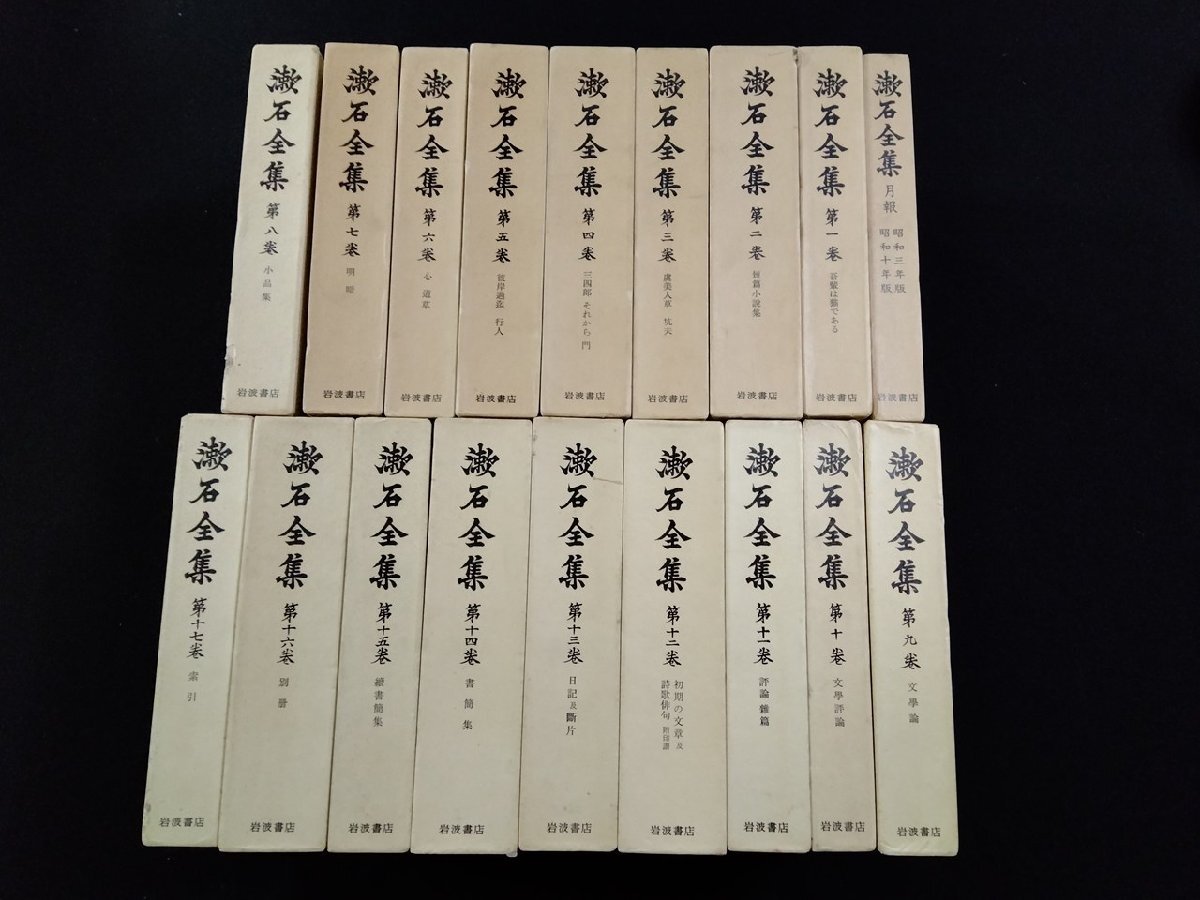 漱石全集 月報 昭和三年版 昭和十年版
岩波書店
漱石全集 第一巻 吾輩は猫である
岩波書店
漱石全集 第二巻 短篇小説集
岩波書店
漱石全集 第三巻 虞美人草 坑夫
岩波書店
漱石全集 第四巻 三四郎 それから 門
岩波書店
漱石全集 第五巻 彼岸過迄 行人
岩波書店
漱石全集 第六巻 心 道草
岩波書店
漱石全集 第七巻 明暗
岩波書店
漱石全集 第八巻 小品集
岩波書店
漱石全集 第九巻 文學論
岩波書店
漱石全集 第十巻 文學評論
岩波書店
漱石全集 第十一巻 評論 雜篇
岩波書店
漱石全集 第十二巻 初期の文章及詩歌俳句 附印譜
岩波書店
漱石全集 第十三巻 日記及斷片
岩波書店
漱石全集 第十四巻 書簡集
岩波書店
漱石全集 第十五巻 續書簡集
岩波書店
漱石全集 第十六巻 別册
岩波書店
漱石全集 第十七巻 索引
岩波書店